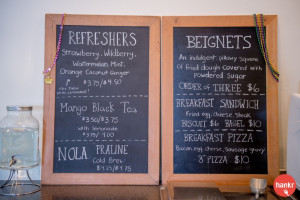 REFRESHERS
Strawberry, Wildberry,
Watermelon Mint,
Orange Coconut Ginger
$3.75/$4.50
Mango Black Tea
$3.50/$3.75
with lemonade
$3.75/4.00
NOLA PRALINE
Cold Brew
$4.25/$4.75
BEIGNETS
An indulgent, pillowy square
of fried dough covered with
powdered sugar
ORDER OF THREE $6
BREAKFAST SANDWICH
Fried egg, cheese, steak
BISCUIT $6 BAGEL $10
BREAKFAST PIZZA
Bacon, egg, cheese, sausage gravy
8" PIZZA $10
hankr